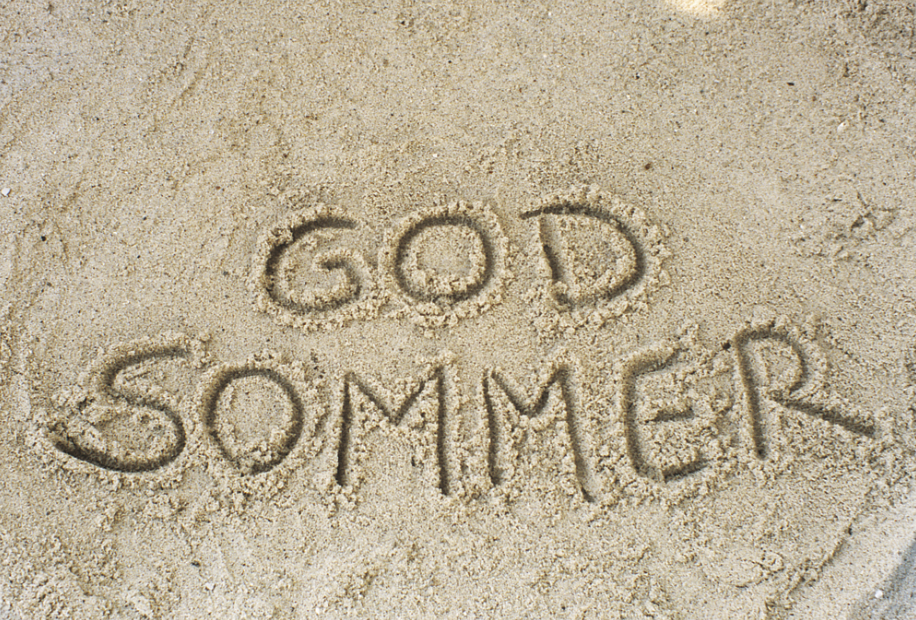 GOD
SOMMER